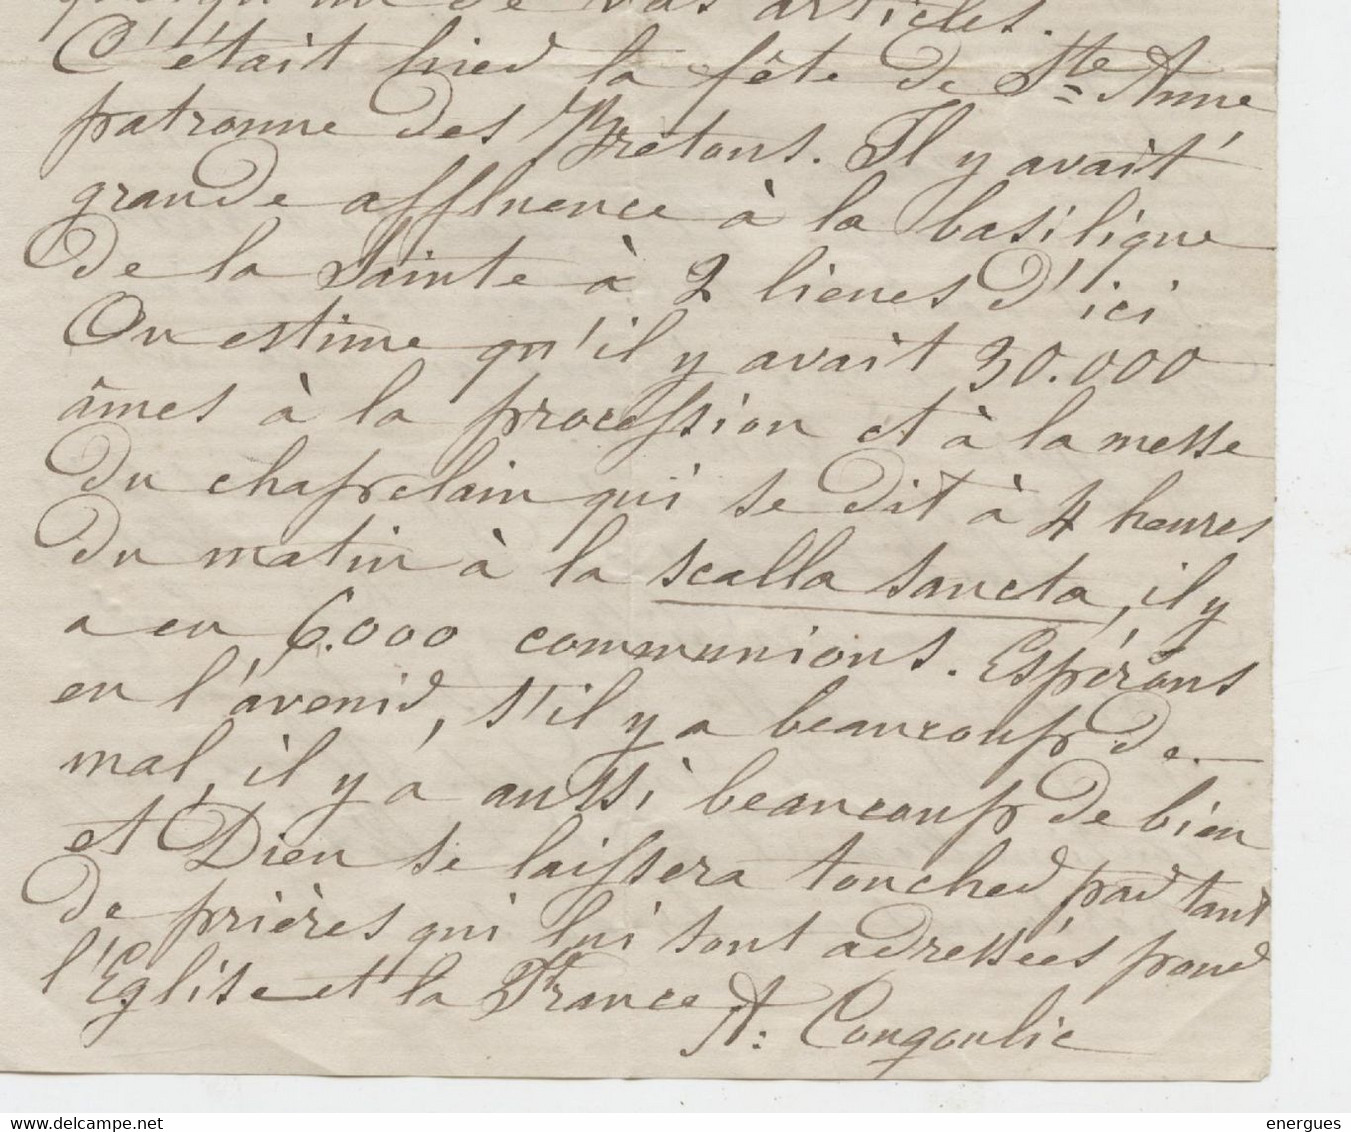 quelqu'un de vos articles.
C'était hier la fête de Ste Anne
patronne des Bretons. Il y avait
grande affluence à la basilique
de la Sainte à 2 lieues d'ici
On estime qu'il y avait 30.000
âmes à la procession et à la messe
du chapelain qui se dit à 4 heures
du matin à la scalla sancta, il y
a eu 6.000 communions. Espérons
en l'avenir, s'il y a beaucoup de
mal, il y a aussi beaucoup de bien
et Dieu se laissera toucher par tant
de prières qui lui sont adressées pour
l'Eglise et la France
A: Congoulic
www.delcampe.net
energues